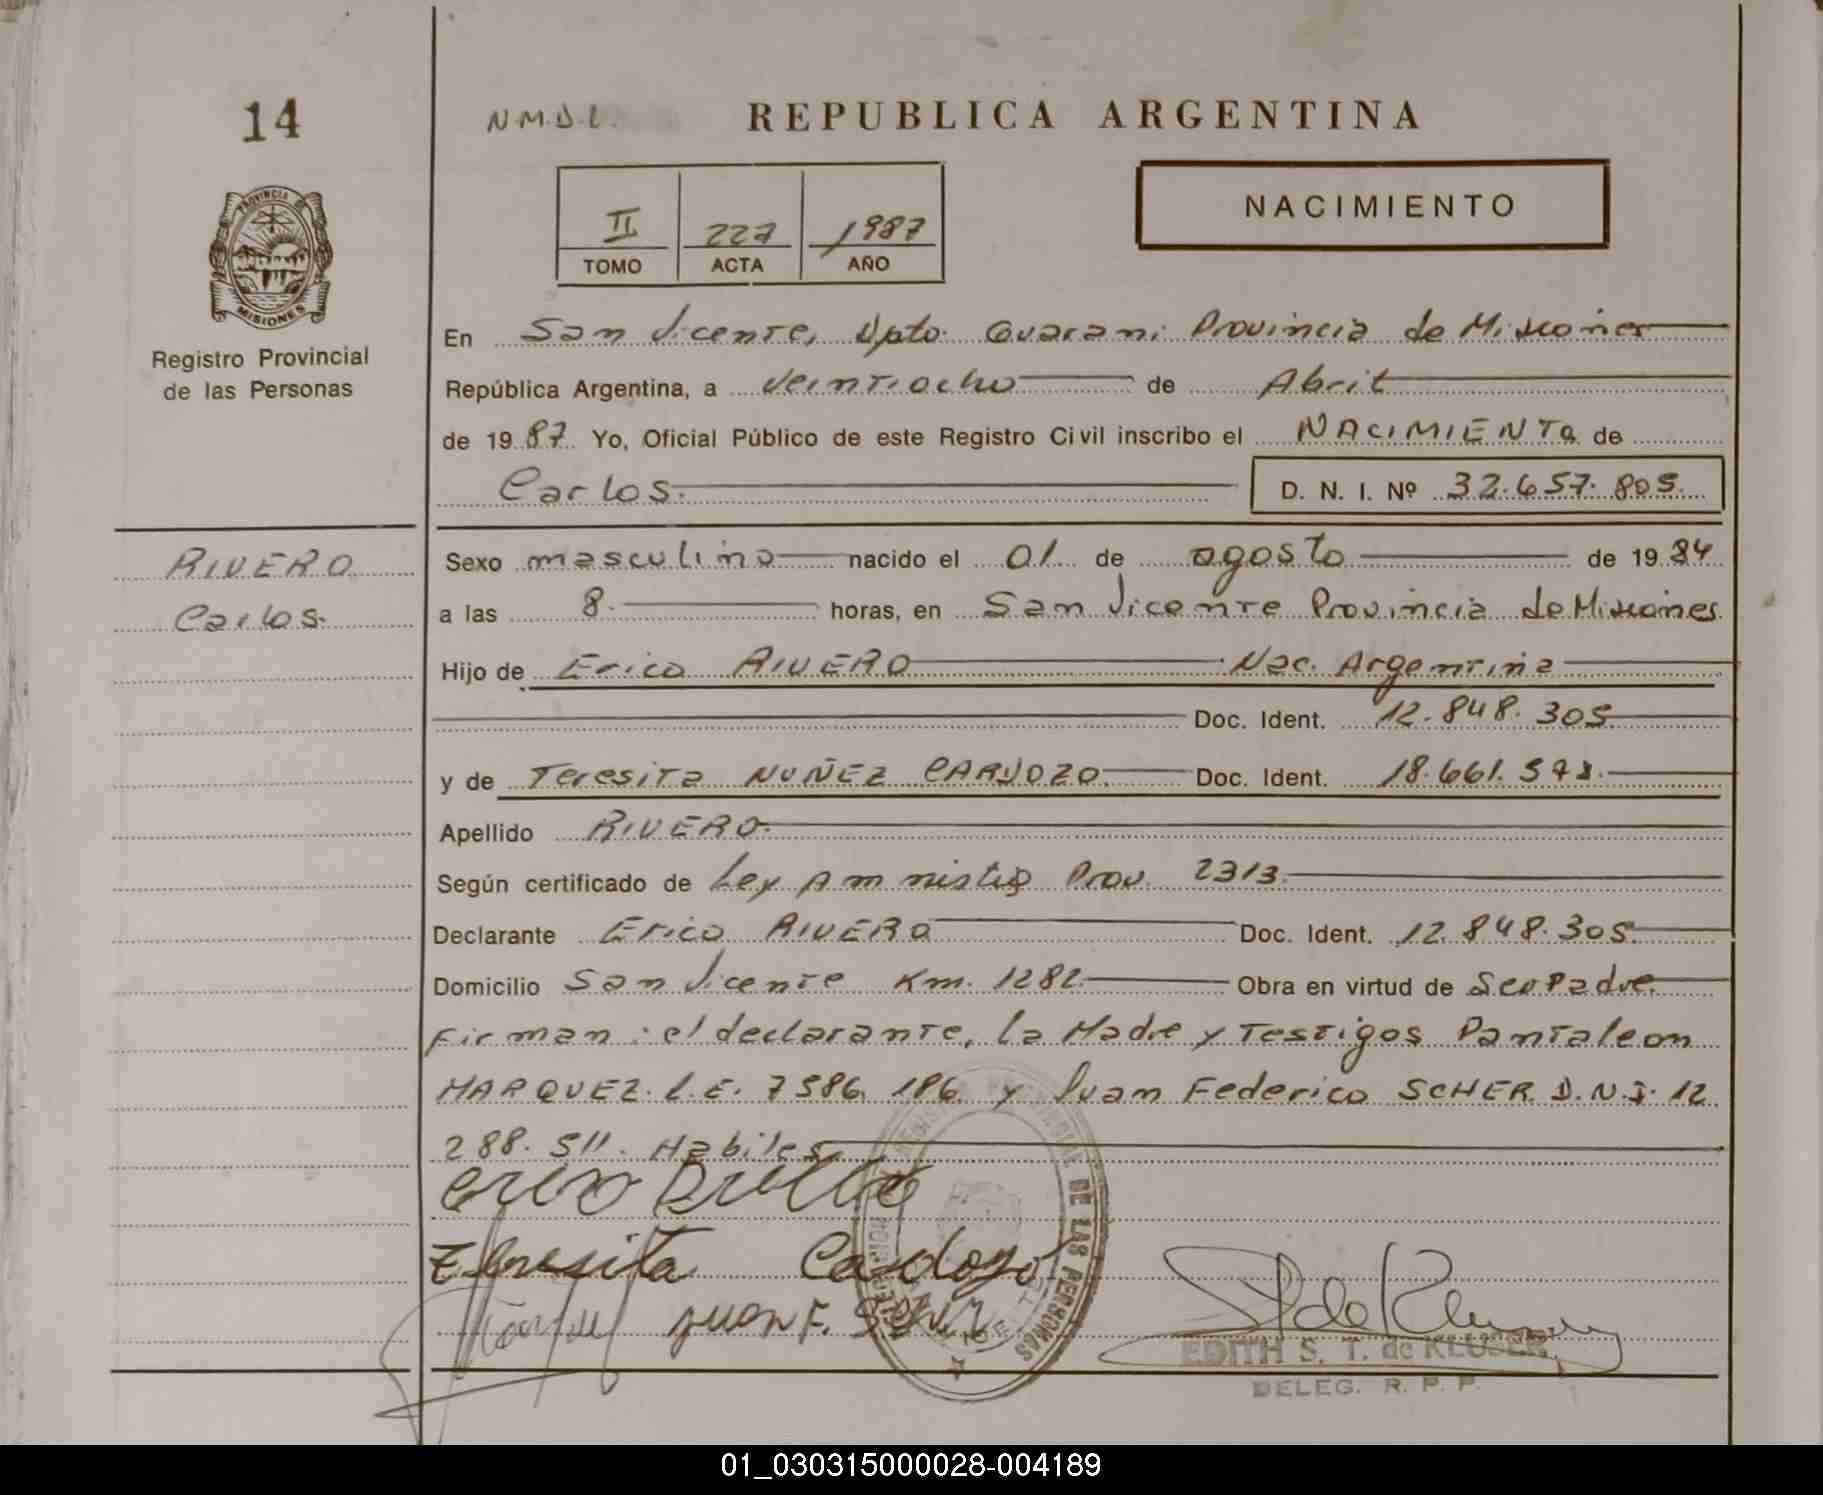 14
N.M.D.L.
REPUBLICA ARGENTINA
PROVINCIA DE
MISIONES
Registro Provincial
de las Personas
II 227 1987
TOMO ACTA AÑO
NACIMIENTO
En San Vicente, Dpto. Guarani Provincia de Misiones
República Argentina, a Veintiocho de Abril
de 1987 Yo, Oficial Público de este Registro Civil inscribo el NACIMIENTO de
Carlos. D. N. I. Nº 32.657.805.
RIVERO
Carlos.
Sexo masculino nacido el 01 de agosto de 1984
a las 8. horas, en San Vicente Provincia de Misiones
Hijo de Erico RIVERO Nac. Argentina
Doc. Ident. 12.848.305
y de Teresita NUÑEZ CARDOZO. Doc. Ident. 18.661.571.
Apellido RIVERO.
Según certificado de Ley Amnistia Prov. 2313.
Declarante Erico RIVERO Doc. Ident. 12.848.305
Domicilio San Vicente Km. 1282 Obra en virtud de Ser Padre.
Firman: el declarante, la Madre y Testigos Pantaleon
MARQUEZ. L.E. 7586.186 y Juan Federico SCHER D.N.I. 12
288.511. Habiles
Teresita Cardozo
Juan F. Scher
DE LAS PERSONAS
EDITH S. T. de KLUSER
DELEG. R. P. P.
01_030315000028-004189